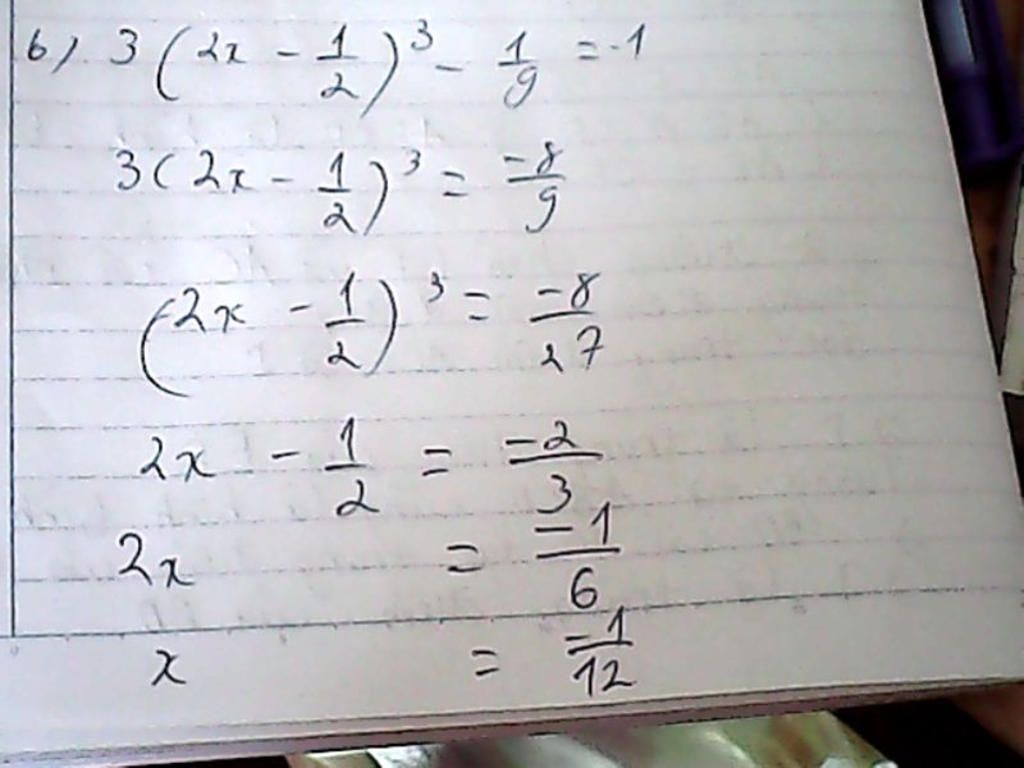 b) 3(2x - 1/2)³ - 1/9 = -1
3(2x - 1/2)³ = -8/9
(2x - 1/2)³ = -8/27
2x - 1/2 = -2/3
2x = -1/6
x = -1/12